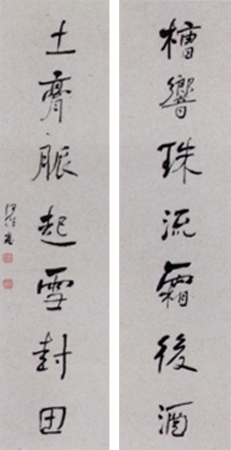 槽響珠流霜後酒
土膏脈起雪封田